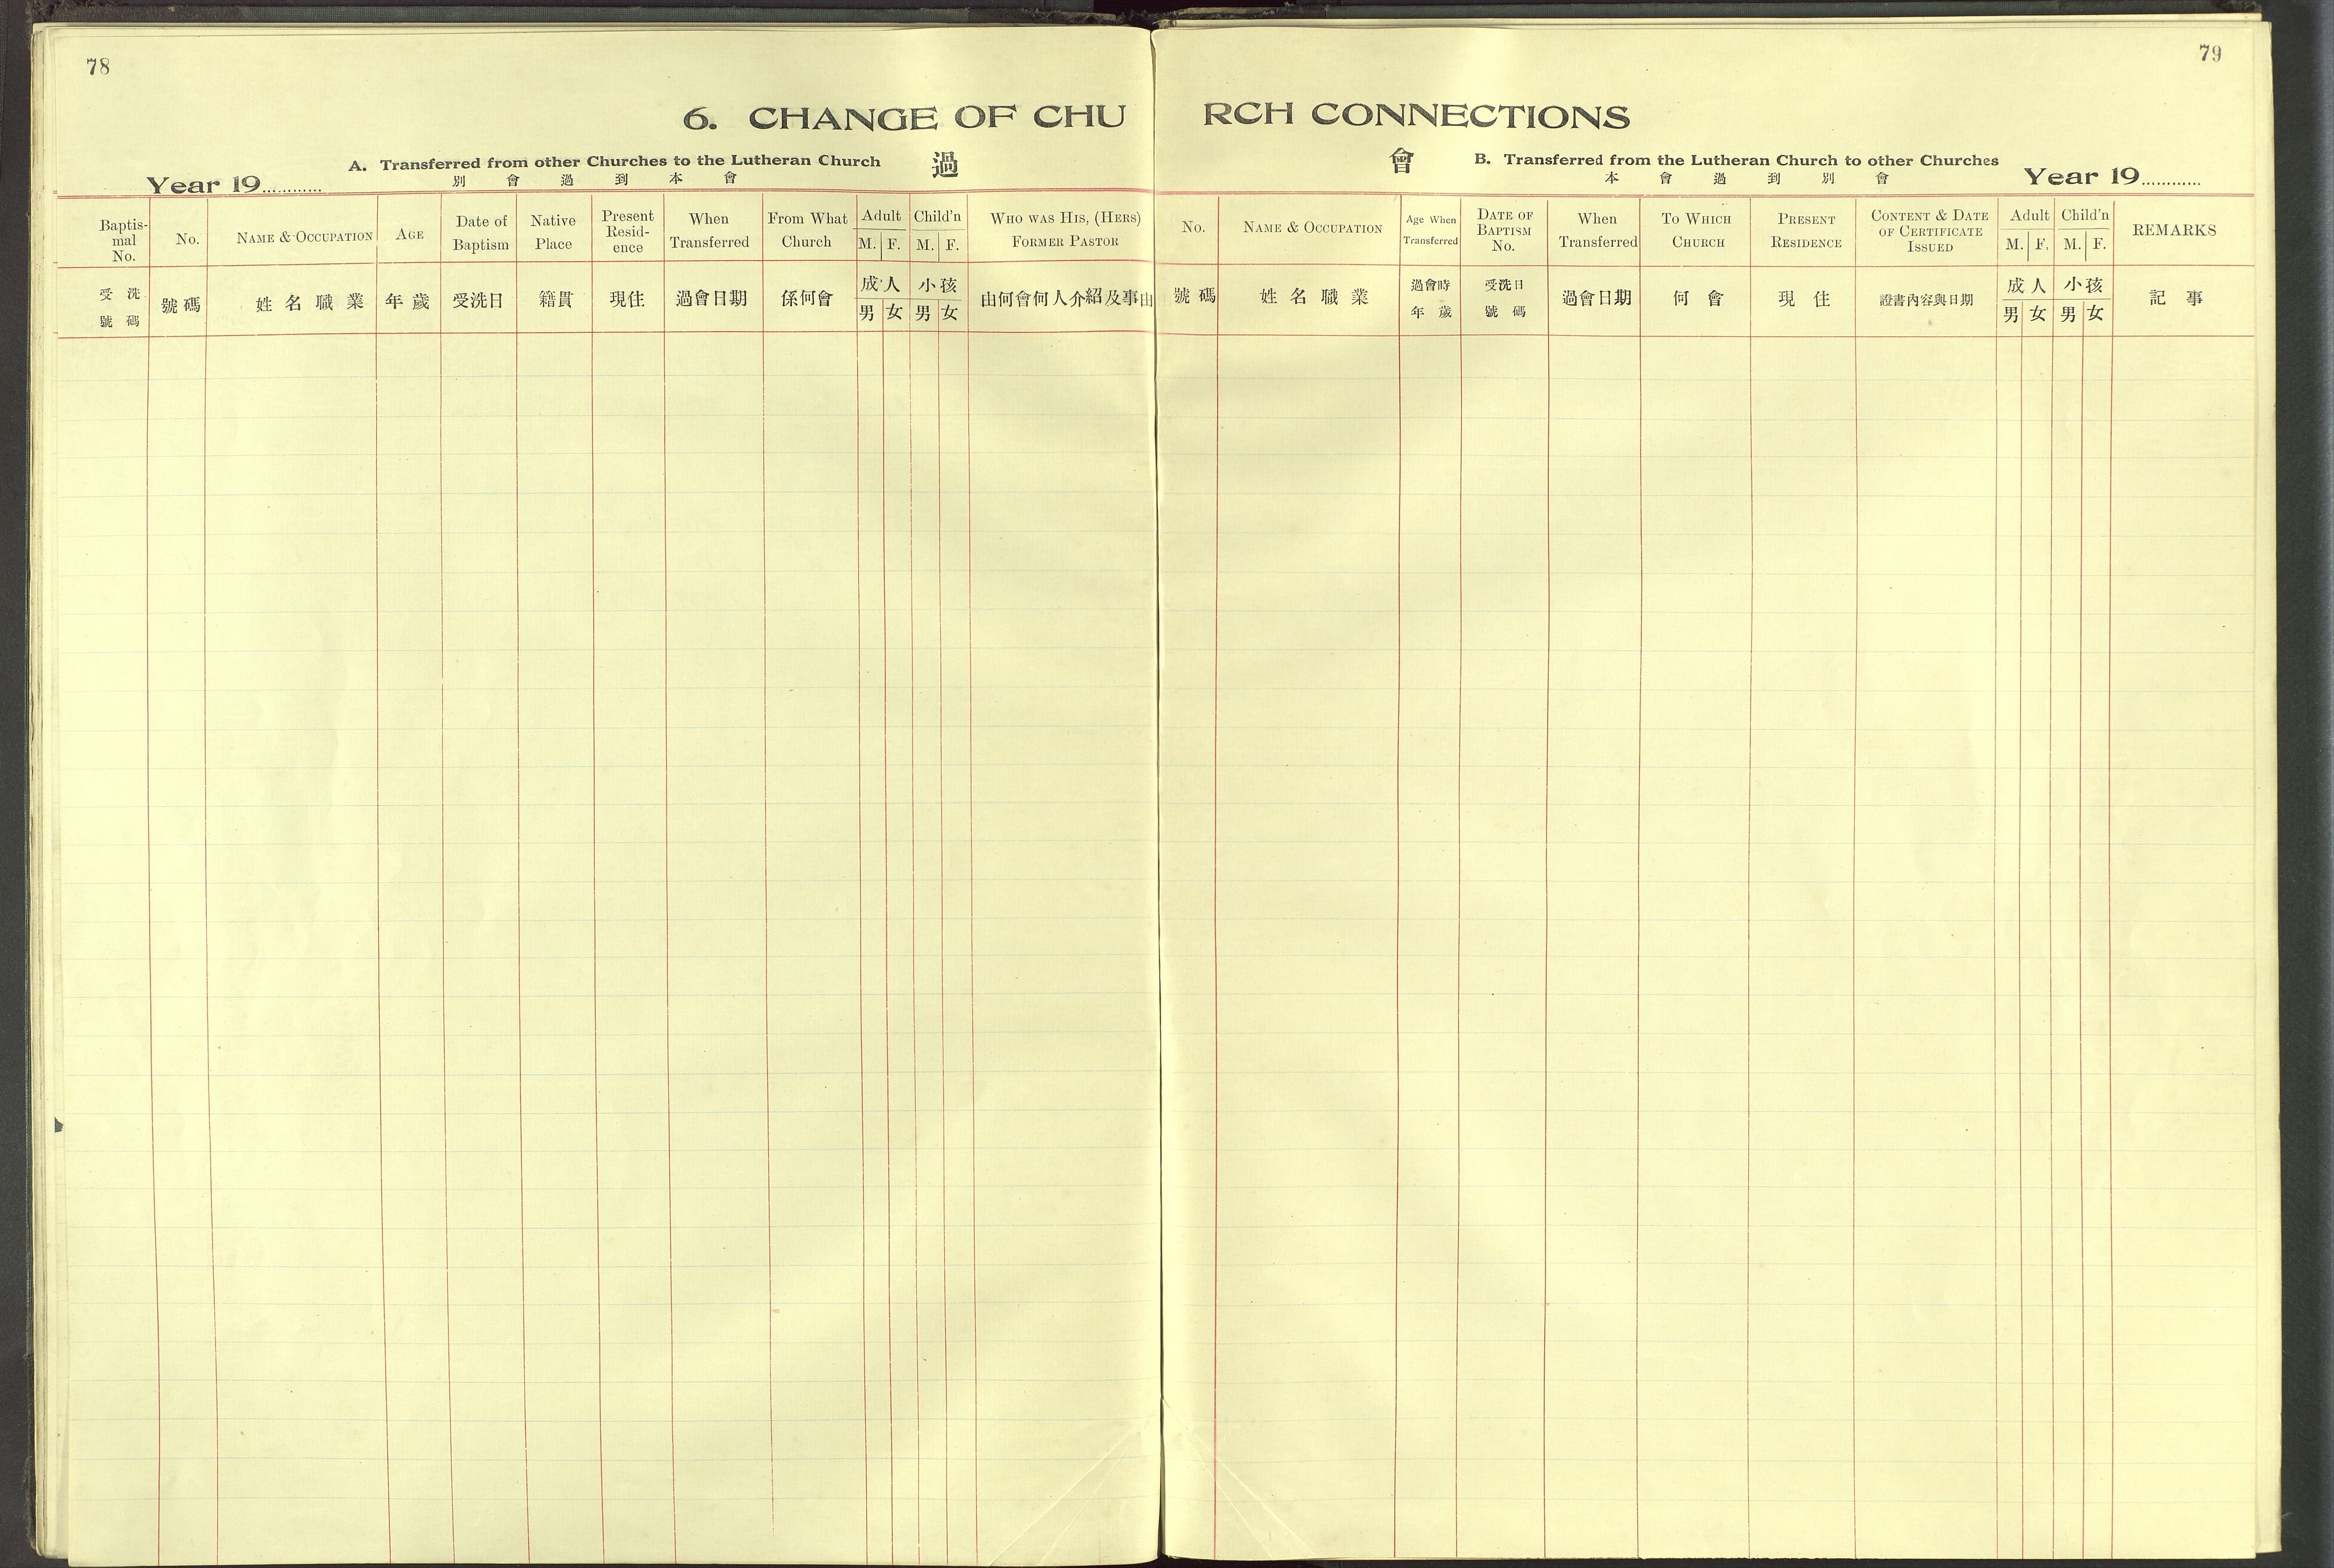 78
6. CHANGE OF CHU
A. Transferred from other Churches to the Lutheran Church 過
別會過到本會
Year 19............
Baptismal No. No. NAME & OCCUPATION AGE Date of Baptism Native Place Present Residence When Transferred From What Church Adult M. F. Child'n M. F. WHO WAS HIS, (HERS) FORMER PASTOR
受洗號碼 號碼 姓名職業 年歲 受洗日 籍貫 現住 過會日期 係何會 成人 男 女 小孩 男 女 由何會何人介紹及事由
79
RCH CONNECTIONS
會 B. Transferred from the Lutheran Church to other Churches
本會過到別會
Year 19............
No. NAME & OCCUPATION Age When Transferred DATE OF BAPTISM No. When Transferred TO WHICH CHURCH PRESENT RESIDENCE CONTENT & DATE OF CERTIFICATE ISSUED Adult M. F. Child'n M. F. REMARKS
號碼 姓名職業 過會時年歲 受洗日號碼 過會日期 何會 現住 證書內容與日期 成人 男 女 小孩 男 女 記事